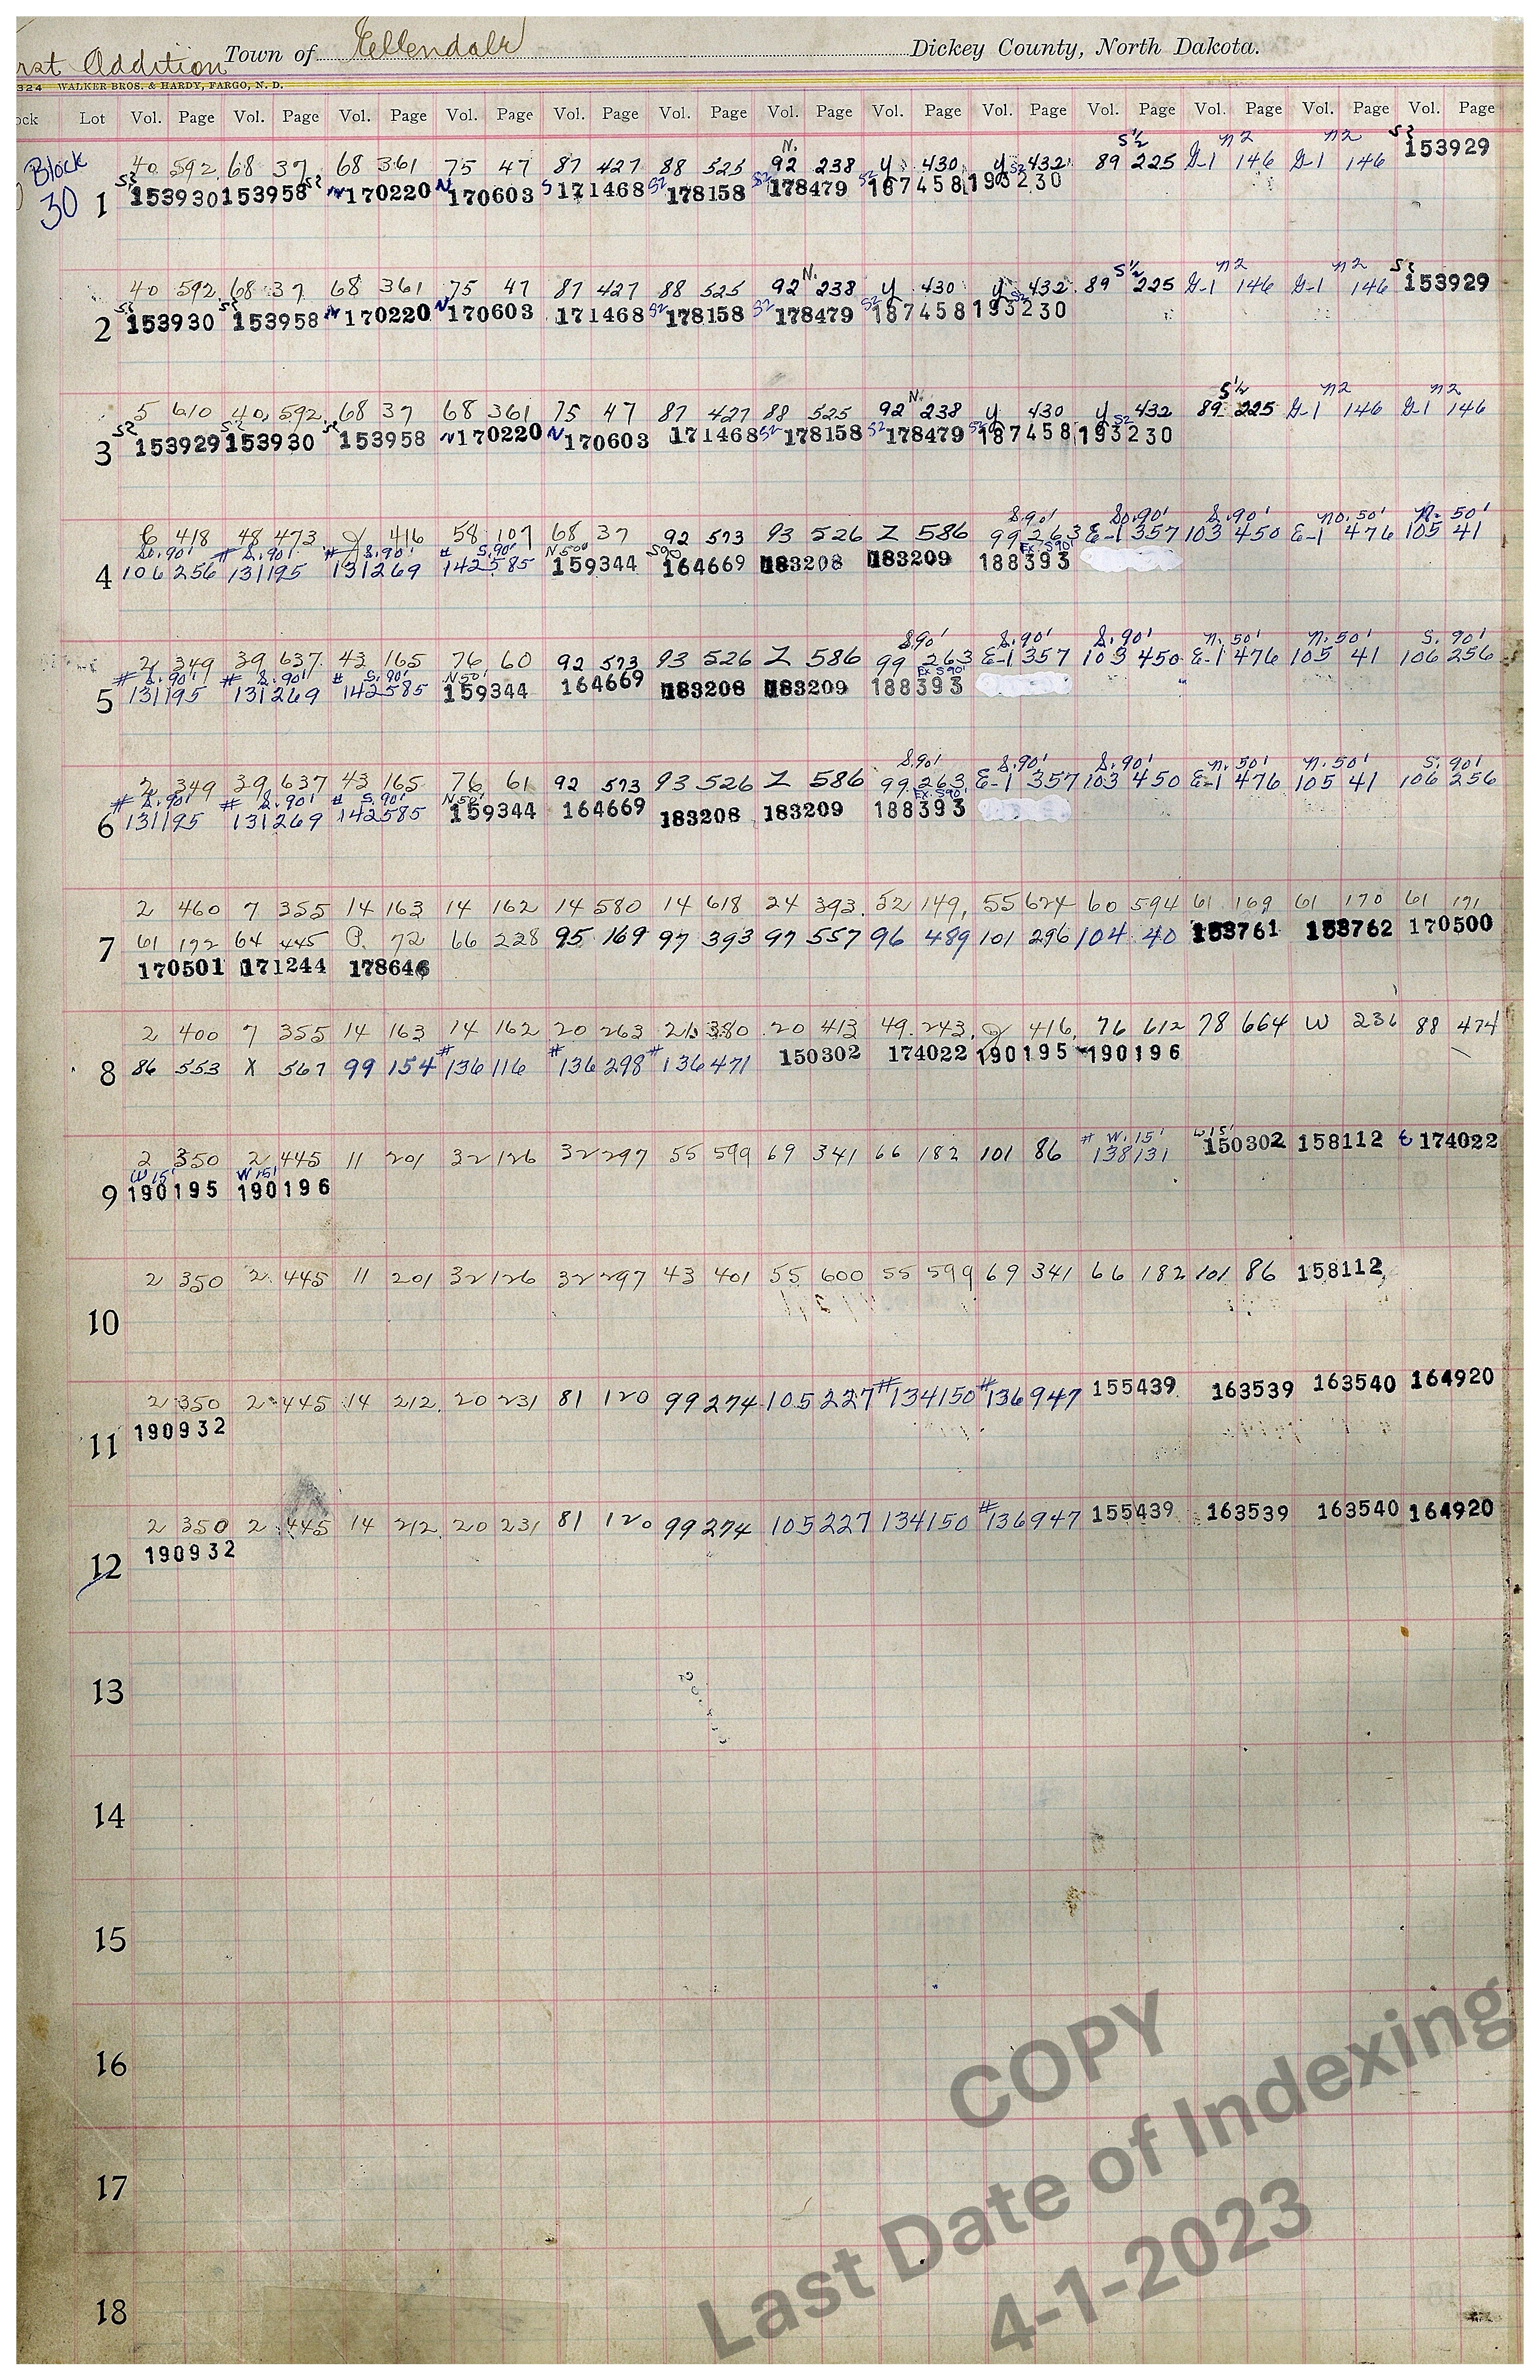 rst Addition Town of Ellendale Dickey County, North Dakota.
324 WALKER BROS. & HARDY, FARGO, N. D.
ock Lot Vol. Page Vol. Page Vol. Page Vol. Page Vol. Page Vol. Page Vol. Page Vol. Page Vol. Page Vol. Page Vol. Page Vol. Page Vol. Page
N. S½ n2 n2 S½
Block 40 592 68 37 68 361 75 47 87 427 88 525 92 238 y 430 y 432 89 225 G-1 146 G-1 146 153929
30 1 S½ 153930 153958 S½ N 170220 N 170603 S 171468 S2 178158 S2 178479 S2 187458 S2 193230
N. S½ n2 n2 S½
40 592 68 37 68 361 75 47 87 427 88 525 92 238 y 430 y 432 89 225 G-1 146 G-1 146 153929
2 S½ 153930 S½ 153958 N 170220 N 170603 171468 S2 178158 S2 178479 S2 187458 S2 193230
N. S½ n2 n2
5 610 40 592 68 37 68 361 75 47 87 427 88 525 92 238 y 430 y 432 89 225 G-1 146 G-1 146
3 S2 153929 S2 153930 S2 153958 N 170220 N 170603 171468 S2 178158 S2 178479 S2 187458 S2 193230
S.90' So.90' S.90' no. 50' N. 50'
418 48 473 416 58 107 68 37 92 573 93 526 Z 586 99 263 E-1 357 103 450 E-1 476 105 41
So.90' # S.90' # S.90' # S.90' N 50' S90 Ex S90'
4 106 256 131195 131269 142585 159344 164669 183208 183209 188393
S.90' S.90' S.90' n. 50' n. 50' S. 90'
2 349 39 637 43 165 76 60 92 573 93 526 Z 586 99 263 E-1 357 103 450 E-1 476 105 41 106 256
# S.90' # S.90' # S.90' N 50' Ex S90'
5 131195 131269 142585 159344 164669 183208 183209 188393
S.90' S.90' S.90' n. 50' n. 50' S. 90'
2 349 39 637 43 165 76 61 92 573 93 526 Z 586 99 263 E-1 357 103 450 E-1 476 105 41 106 256
# S.90' # S.90' # S.90' N 50' Ex. S90'
6 131195 131269 142585 159344 164669 183208 183209 188393
2 460 7 355 14 163 14 162 14 580 14 618 24 393 52 149 55 624 60 594 61 169 61 170 61 171
7 61 172 64 445 P. 72 66 228 95 169 97 393 97 557 96 489 101 296 104 40 153761 153762 170500
170501 171244 178646
2 400 7 355 14 163 14 162 20 263 21 380 20 413 49 243 416 76 612 78 664 W 236 88 474
8 86 553 X 567 99 154 #136116 #136298 #136471 150302 174022 190195 190196
2 350 2 445 11 201 32 126 32 297 55 599 69 341 66 182 101 86 # W. 15' 138131 W15' 150302 158112 E 174022
W 15' W 15'
9 190195 190196
2 350 2 445 11 201 32 126 32 297 43 401 55 600 55 599 69 341 66 182 101 86 158112
10
2 350 2 445 14 212 20 231 81 120 99 274 105 227 #134150 #136947 155439 163539 163540 164920
11 190932
2 350 2 445 14 212 20 231 81 120 99 274 105 227 134150 #136947 155439 163539 163540 164920
12 190932
13
14
15
16
17
18
COPY
Last Date of Indexing
4-1-2023